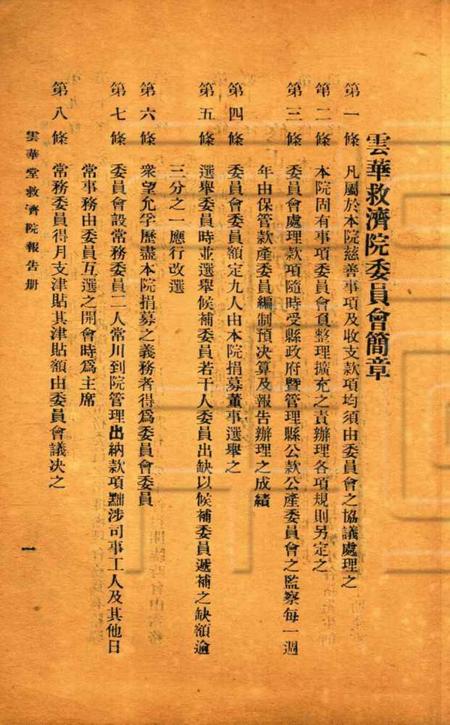 雲華救濟院委員會簡章
第一條 凡屬於本院慈善事項及收支款項均須由委員會之協議處理之
第二條 本院固有事項委員會負整理擴充之責辦理各項規則另定之
第三條 委員會處理款項隨時受縣政府暨管理縣公款公產委員會之監察每一週
年由保管款產委員編制預決算及報告辦理之成績
第四條 委員會委員額定九人由本院捐募董事選舉之
第五條 選舉委員時並選舉候補委員若干人委員出缺以候補委員遞補之缺額逾
三分之一應行改選
第六條 衆望允孚歷盡本院捐募之義務者得爲委員會委員
第七條 委員會設常務委員二人常川到院管理出納款項黜涉司事工人及其他日
常事務由委員互選之開會時爲主席
第八條 常務委員得月支津貼其津貼額由委員會議決之
雲華堂救濟院報告册
一